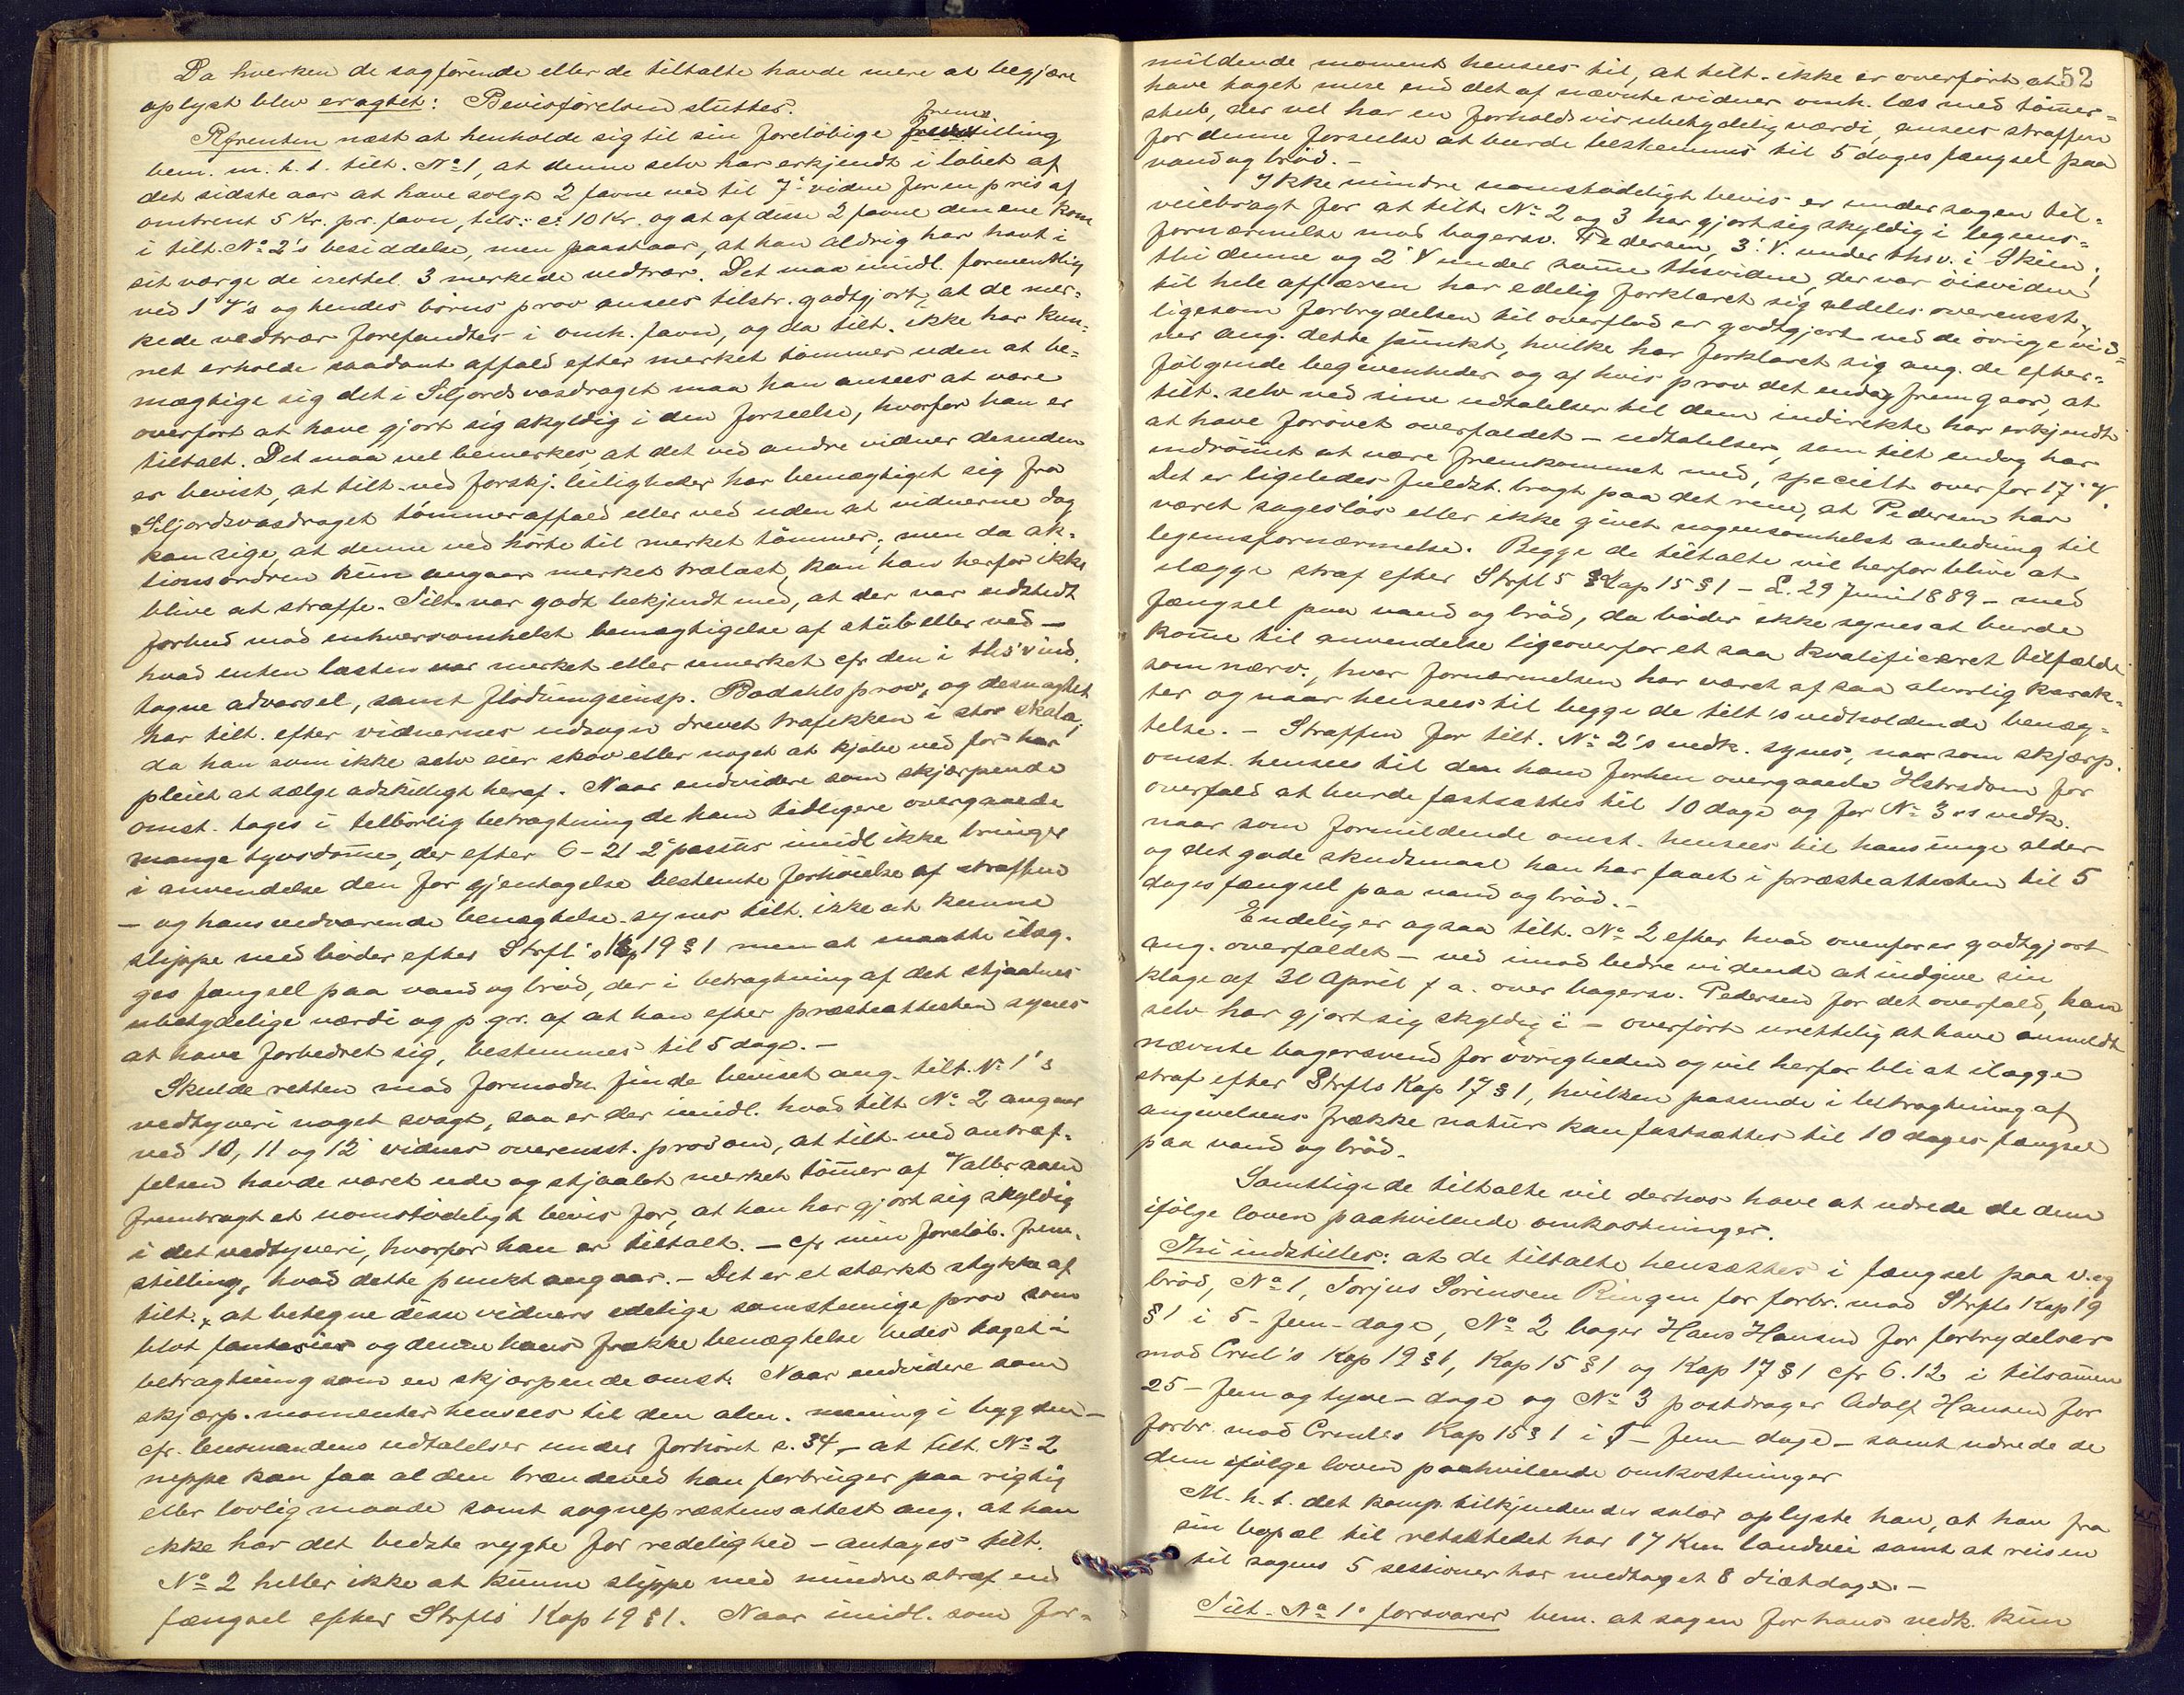 Da hverken de sagförende eller de tiltalte havde mere at begjære
oplyst blev eragtet: Bevisförelsen sluttes.
Rfrenten næst at henholde sig til sin foreløbige fremstilling
bem. m. h. t. tilt. No 1, at denne selv har erkjendt i løbet af
det sidste aar at have solgt 2 favne ved til 7' vidne for en pris af
omtrent 5 Kr. pr. favn, tils: ca 10 Kr. og at af disse 2 favne den ene kom
i tilt. No 2's besiddelse, men paastaar, at han aldrig har havt i
sit værge de i rettel 3 merkede vedtrær. Det maa imidl. formentlig
ved 1 V's og hendes börns prov ansees tilstr. godtgjort, at de mer-
kede vedtrær forefandtes i omh. favn, og da tilt. ikke har kun-
net erholde saadant affald efter merket tömmer uden at be-
mægtige sig det i Siljordsvasdraget maa han ansees at være
overfört at have gjort sig skyldig i den forseelse, hvorfor han er
tiltalt. Det maa vel bemerkes, at det ved andre vidner desuden
er bevist, at tilt. ved forskj. leiligheder har bemægtiget sig fra
Siljordsvasdraget tömmeraffald eller ved uden at vidnerne dog
kan sige, at denne ved hörte til merket tömmer; men da ak-
tionsordren kun angaar merket trælast, kan han herfor ikke
blive at straffe. Tilt. var godt bekjendt med, at der var udstedt
forbud mod enhversomhelst bemægtigelse af stub eller ved –
hvad enten lasten var merket eller umerket cfr den i thsv ind.
tagne advarsel, samt flödningsinsp. Bodahls prov, og desuagtet
har tilt. efter vidnernes udsagn drevet trafikken i stor skala,
da han som ikke selv eier skov eller noget at kjöbe ved for har
pleiet at sælge adskilligt heraf. Naar endvidere som skjærpende
omst. tages i tilbörlig betragtning de ham tidligere overgaaede
mange tyvsdomme, der efter 6-21 2' passus imidl ikke bringer
i anvendelse den for gjentagelse bestemte forhöielse af straffen
– og hans vedvarende benægtelse synes tilt. ikke at kunne
slippe med böder efter Strfl's Kap 19 § 1 men at maatte ilæg.
ges fængsel paa vand og bröd, der i betragtning af det stjaalnes
ubetydelige værdi og p. gr. af at han efter præsteattesten synes
at have forbedret sig, bestemmes til 5 dage. –
Skulde retten mod formodn. finde beviset ang. tilt. No 1's
vedtyveri noget svagt, saa er der imidl. hvad tilt No 2 angaar
ved 10, 11 og 12' vidnes overensst. prov om, at tilt. ved antræf-
felsen havde været ude og stjaalet merket tömmer af Valleraaen
frembragt et uomstödeligt bevis for, at han har gjort sig skyldig
i det vedtyveri, hvorfor han er tiltalt. – Cfr min foreløb. frem-
stilling, hvad dette punkt angaar. – Det er et stærkt stykke af
tilt. at betegne disse vidners edelige samstemmige prov som
blot fantasier og denne hans frække benægtelse bedes taget i
betragtning som en skjærpende omst. Naar endvidere som
skjærp. momenter hensees til den alm. mening i bygden –
cfr. lensmandens udtalelser under forhöret s. 34 – at tilt. No 2
neppe kan faa al den brændeved han forbruger paa rigtig
eller lovlig maade samt sognepræstens attest ang. at han
ikke har det bedste rygte for redelighed – antages tilt.
No 2 heller ikke at kunne slippe med mindre straf end
fængsel efter Strfls Kap 19 § 1. Naar imidl. som for-
52
mildende moment hensees til, at tilt. ikke er overfört at
have taget mere end det af nævnte vidner omh. læs med tömmer-
stub, der vel har en forholdsvis ubetydelig værdi, ansees straffen
for denne forseelse at burde bestemmes til 5 dages fængsel paa
vand og bröd. –
Ikke mindre uomstödeligt bevis er under sagen til-
veiebragt for at tilt. No 2 og 3 har gjort sig skyldig i legems-
fornærmelse mod bagersv. Pedersen, 3' V. under thsv. i Skien,
thi denne og 2' V under samme thsvidne, der var öievidne
til hele affæren har edelig forklaret sig aldeles overensst.
ligesom forbrydelsen til overflod er godtgjort ved de övrige vid-
ner ang. dette punkt, hvilke har forklaret sig ang. de efter-
fölgende begivenheder og af hvis prov det endog fremgaar, at
tilt. selv ved sine udtalelser til dem indirekte har erkjendt
at have forövet overfaldet – udtalelser, som tilt endog har
indrömmet at være fremkommet med, specielt overfor 17' V.
Det er ligeledes fuldst. bragt paa det rene, at Pedersen har
været sagesløs eller ikke givet nogensomhelst anledning til
legemsfornærmelse. Begge de tiltalte vil herfor blive at
ilægge straf efter Strfl s Kap 15 § 1 – L. 29 Juni 1889 – med
fængsel paa vand og bröd, da böder ikke synes at burde
komme til anvendelse ligeoverfor et saa kvalificeret tilfælde
som nærv., hvor fornærmelsen har været af saa alvorlig karak-
ter og naar hensees til begge de tilt's vedholdende benæg-
telse. – Straffen for tilt. No 2's vedk. synes, naar som skjærp.
omst. hensees til den ham forhen overgaaede Hstrsdom for
overfald at burde fastsættes til 10 dage og for No 3 es vedk.
naar som formildende omst. hensees til hans unge alder
og det gode skudsmaal han har faaet i præsteattesten til 5
dages fængsel paa vand og bröd. –
Endelig er ogsaa tilt. No 2 efter hvad ovenfor er godtgjort
ang. overfaldet – ved imod bedre vidende at indgive sin
klage af 30 April f. a. over bagersv. Pedersen for det overfald, han
selv har gjort sig skyldig i – overfört urettelig at have anmeldt
nævnte bagersvend for övrigheden og vil herfor bli at ilægge
straf efter Strfls Kap 17 § 1, hvilken passende i betragtning af
angivelsens frække natur kan fastsættes til 10 dages fængsel
paa vand og bröd.
Samtlige de tiltalte vil derhos have at udrede de dem
ifölge loven paahvilende omkostninger.
Thi indstilles: at de tiltalte hensættes i fængsel paa v. og
bröd, No 1, Torjus Sörensen Ringen for forbr. mod Strfls Kap 19
§ 1 i 5 – fem – dage, No 2 bager Hans Hansen for forbrydelser
mod Crml's Kap 19 § 1, Kap 15 § 1 og Kap 17 § 1 cfr 6.12 i tilsammen
25 – fem og tyve – dage og No 3 postdrager Adolf Hansen for
forbr. mod Crmls Kap 15 § 1 i 5 – fem – dage – samt udrede de
dem ifölge loven paahvilende omkostninger
M. h. t. det komp. tilkjendendes salær oplyste han, at han fra
sin bopæl til retsstedet har 17 Km landvei samt at reisen
til sagens 5 sessioner har medtaget 8 diætdage. –
Tilt. No 1' forsvarer bem. at sagen for hans vedk. kun